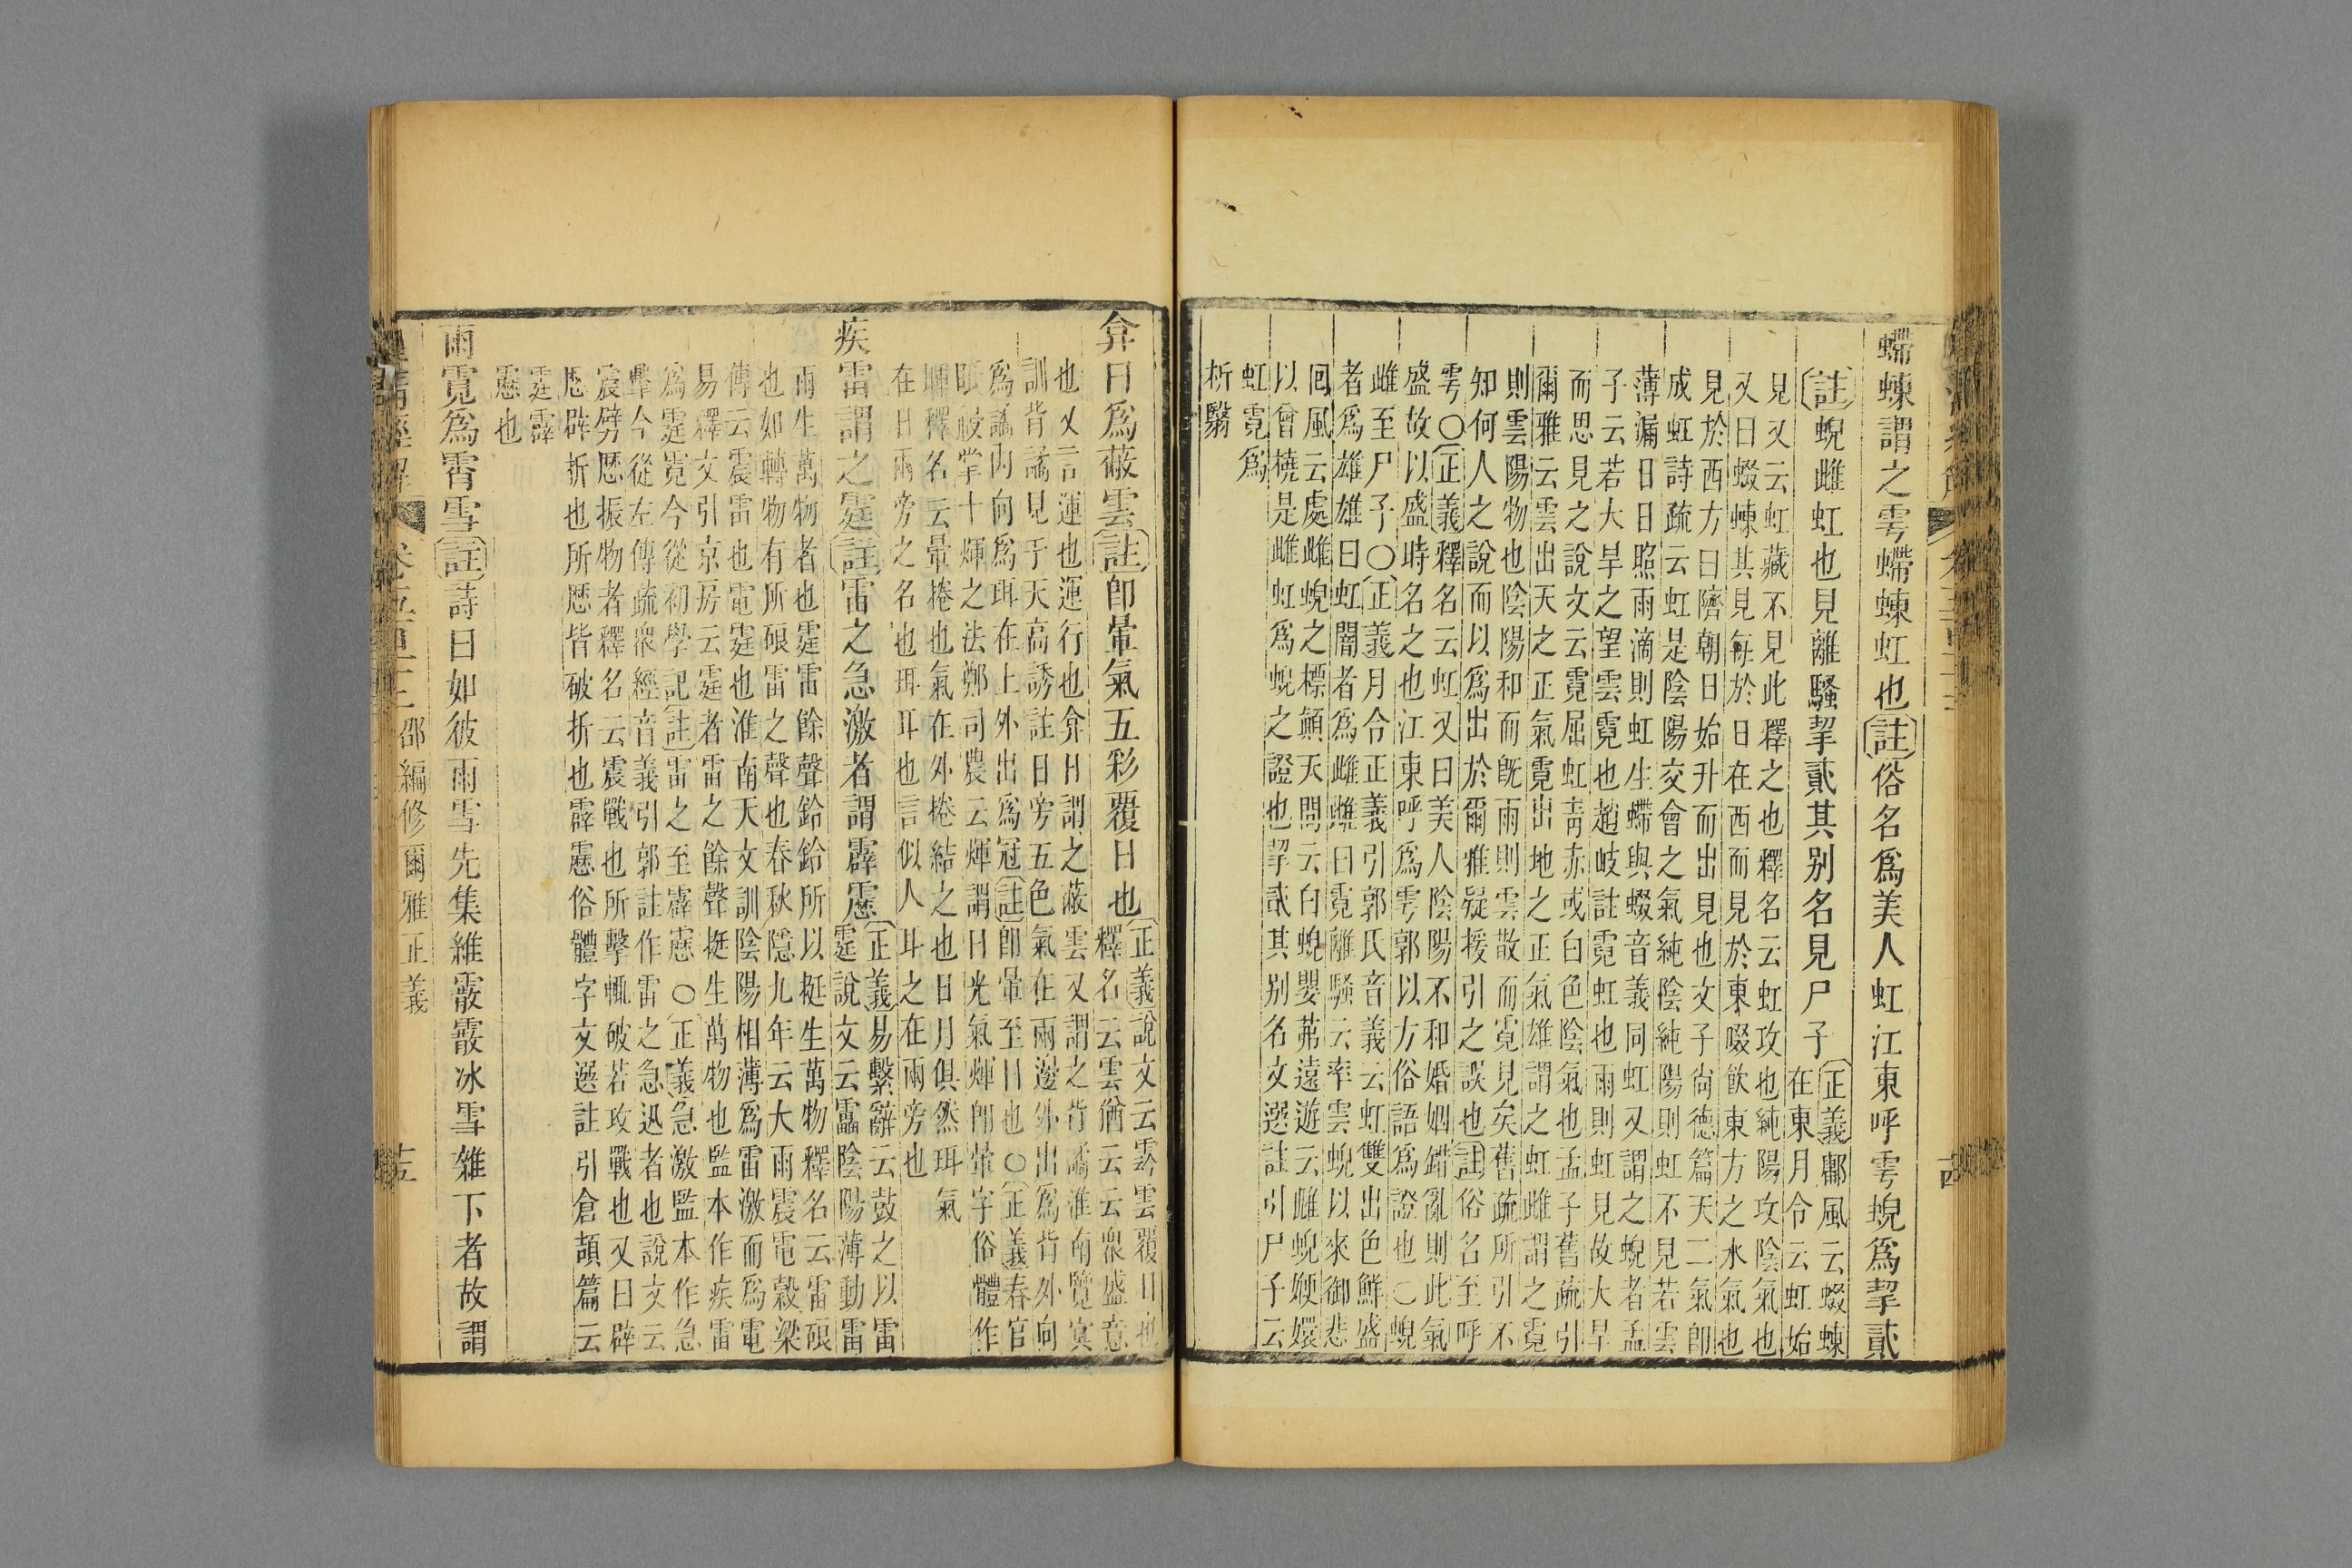 螮蝀謂之雩螮蝀虹也註俗名爲美人虹江東呼雩蜺爲挈貳
註蜺雌虹也見離騷挈貳其别名見尸子
正義鄘風云蝃蝀
在東月令云虹始
見又云虹藏不見此釋之也釋名云虹攻也純陽攻陰氣也
又曰蝃蝀其見每於日在西而見於東啜飲東方之水氣也
見於西方曰隮朝日始升而出見也文子尙德篇天二氣卽
成虹詩疏云虹是陰陽交會之氣純陰純陽則虹不見若雲
薄漏日日照雨滴則虹生螮與蝃音義同虹又謂之蜺者孟
子云若大旱之望雲霓也趙岐註霓虹也雨則虹見故大旱
而思見之說文云霓屈虹靑赤或白色陰氣也孟子舊疏引
爾雅云雲出天之正氣霓出地之正氣雄謂之虹雌謂之霓
則雲陽物也陰陽和而旣雨則雲散而霓見矣舊疏所引不
知何人之說而以爲出於爾雅疑援引之誤也註俗名至呼
雩○正義釋名云虹又曰美人陰陽不和婚姻錯亂則此氣
盛故以盛時名之也江東呼爲雩郭以方俗語爲證也○蜺
雌至尸子○正義月令正義引郭氏音義云虹雙出色鮮盛
者爲雄雄曰虹闇者爲雌雌曰霓離騷云率雲蜺以來御悲
回風云處雌蜺之標顚天問云白蜺嬰茀遠遊云雌蜺㛹嬛
以曾橈是雌虹爲蜺之證也挈貳其别名文選註引尸子云
虹霓爲
析翳
弇日爲蔽雲註卽暈氣五彩覆日也
正義說文云雺雲覆日也
釋名云雲猶云云衆盛意
也又言運也運行也弇日謂之蔽雲又謂之背譎淮南覽冥
訓背譎見于天高誘註日旁五色氣在兩邊外出爲背外向
爲譎內向爲珥在上外出爲冠註卽暈至日也○正義春官
眡祲掌十煇之法鄭司農云煇謂日光氣煇卽暈字俗體作
暉釋名云暈捲也氣在外捲結之也日月俱然珥氣
在日兩旁之名也珥耳也言似人耳之在兩旁也
疾雷謂之霆註雷之急激者謂霹靂
正義易繫辭云鼓之以雷
霆說文云靁陰陽薄動雷
雨生萬物者也霆雷餘聲鈴鈴所以挺生萬物釋名云雷硠
也如轉物有所硠雷之聲也春秋隱九年云大雨震電穀梁
傳云震雷也電霆也淮南天文訓陰陽相薄爲雷激而爲電
易釋文引京房云霆者雷之餘聲挺生萬物也監本作疾雷
爲霆霓今從初學記註雷之至霹靂○正義急激監本作急
擊今從左傳疏衆經音義引郭註作雷之急迅者也說文云
震劈歷振物者釋名云震戰也所擊輒破若攻戰也又曰辟
歷辟折也所歷皆破折也霹靂俗體字文選註引倉頡篇云
霆霹
靂也
雨霓爲霄雪註詩曰如彼雨雪先集維霰霰冰雪雜下者故謂
皇淸經解 卷五百十三 邵編修爾雅正義 十五